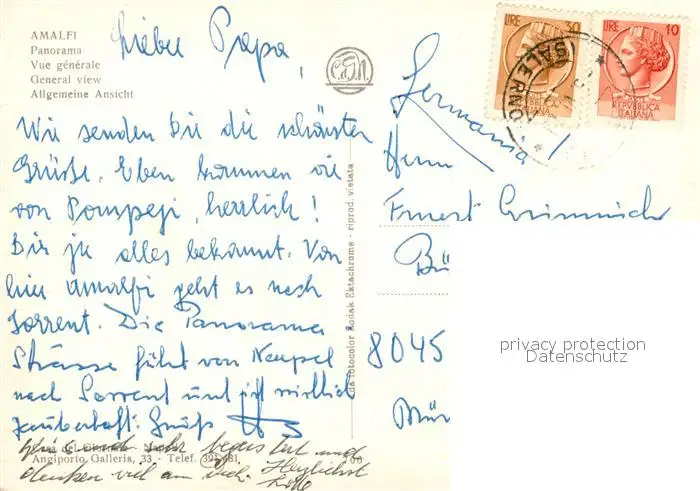 AMALFI
Panorama
Vue générale
General view
Allgemeine Ansicht
Lieber Papa,
C.G.N.
LIRE 30
LIRE 10
REPVBBLICA
ITALIANA
SALERNO
Wir senden Dir die schönsten
Grüße. Eben kommen wir
von Pompeji, herrlich!
Dir ja alles bekannt. Von
hier Amalfi geht es nach
Sorrent. Die Panorama
Strasse führt von Neapel
nach Sorrent und ist wirklich
zauberhaft. Gruß
sind sehr begeistert und
denken viel an Dich. Herzlichst
Angiporto Galleria, 33 - Telef. 391481
da fotocolor Kodak Ektachrome - riprod. vietata
Germania!
Herrn
Ernest
Bü
8045
privacy protection
Datenschutz